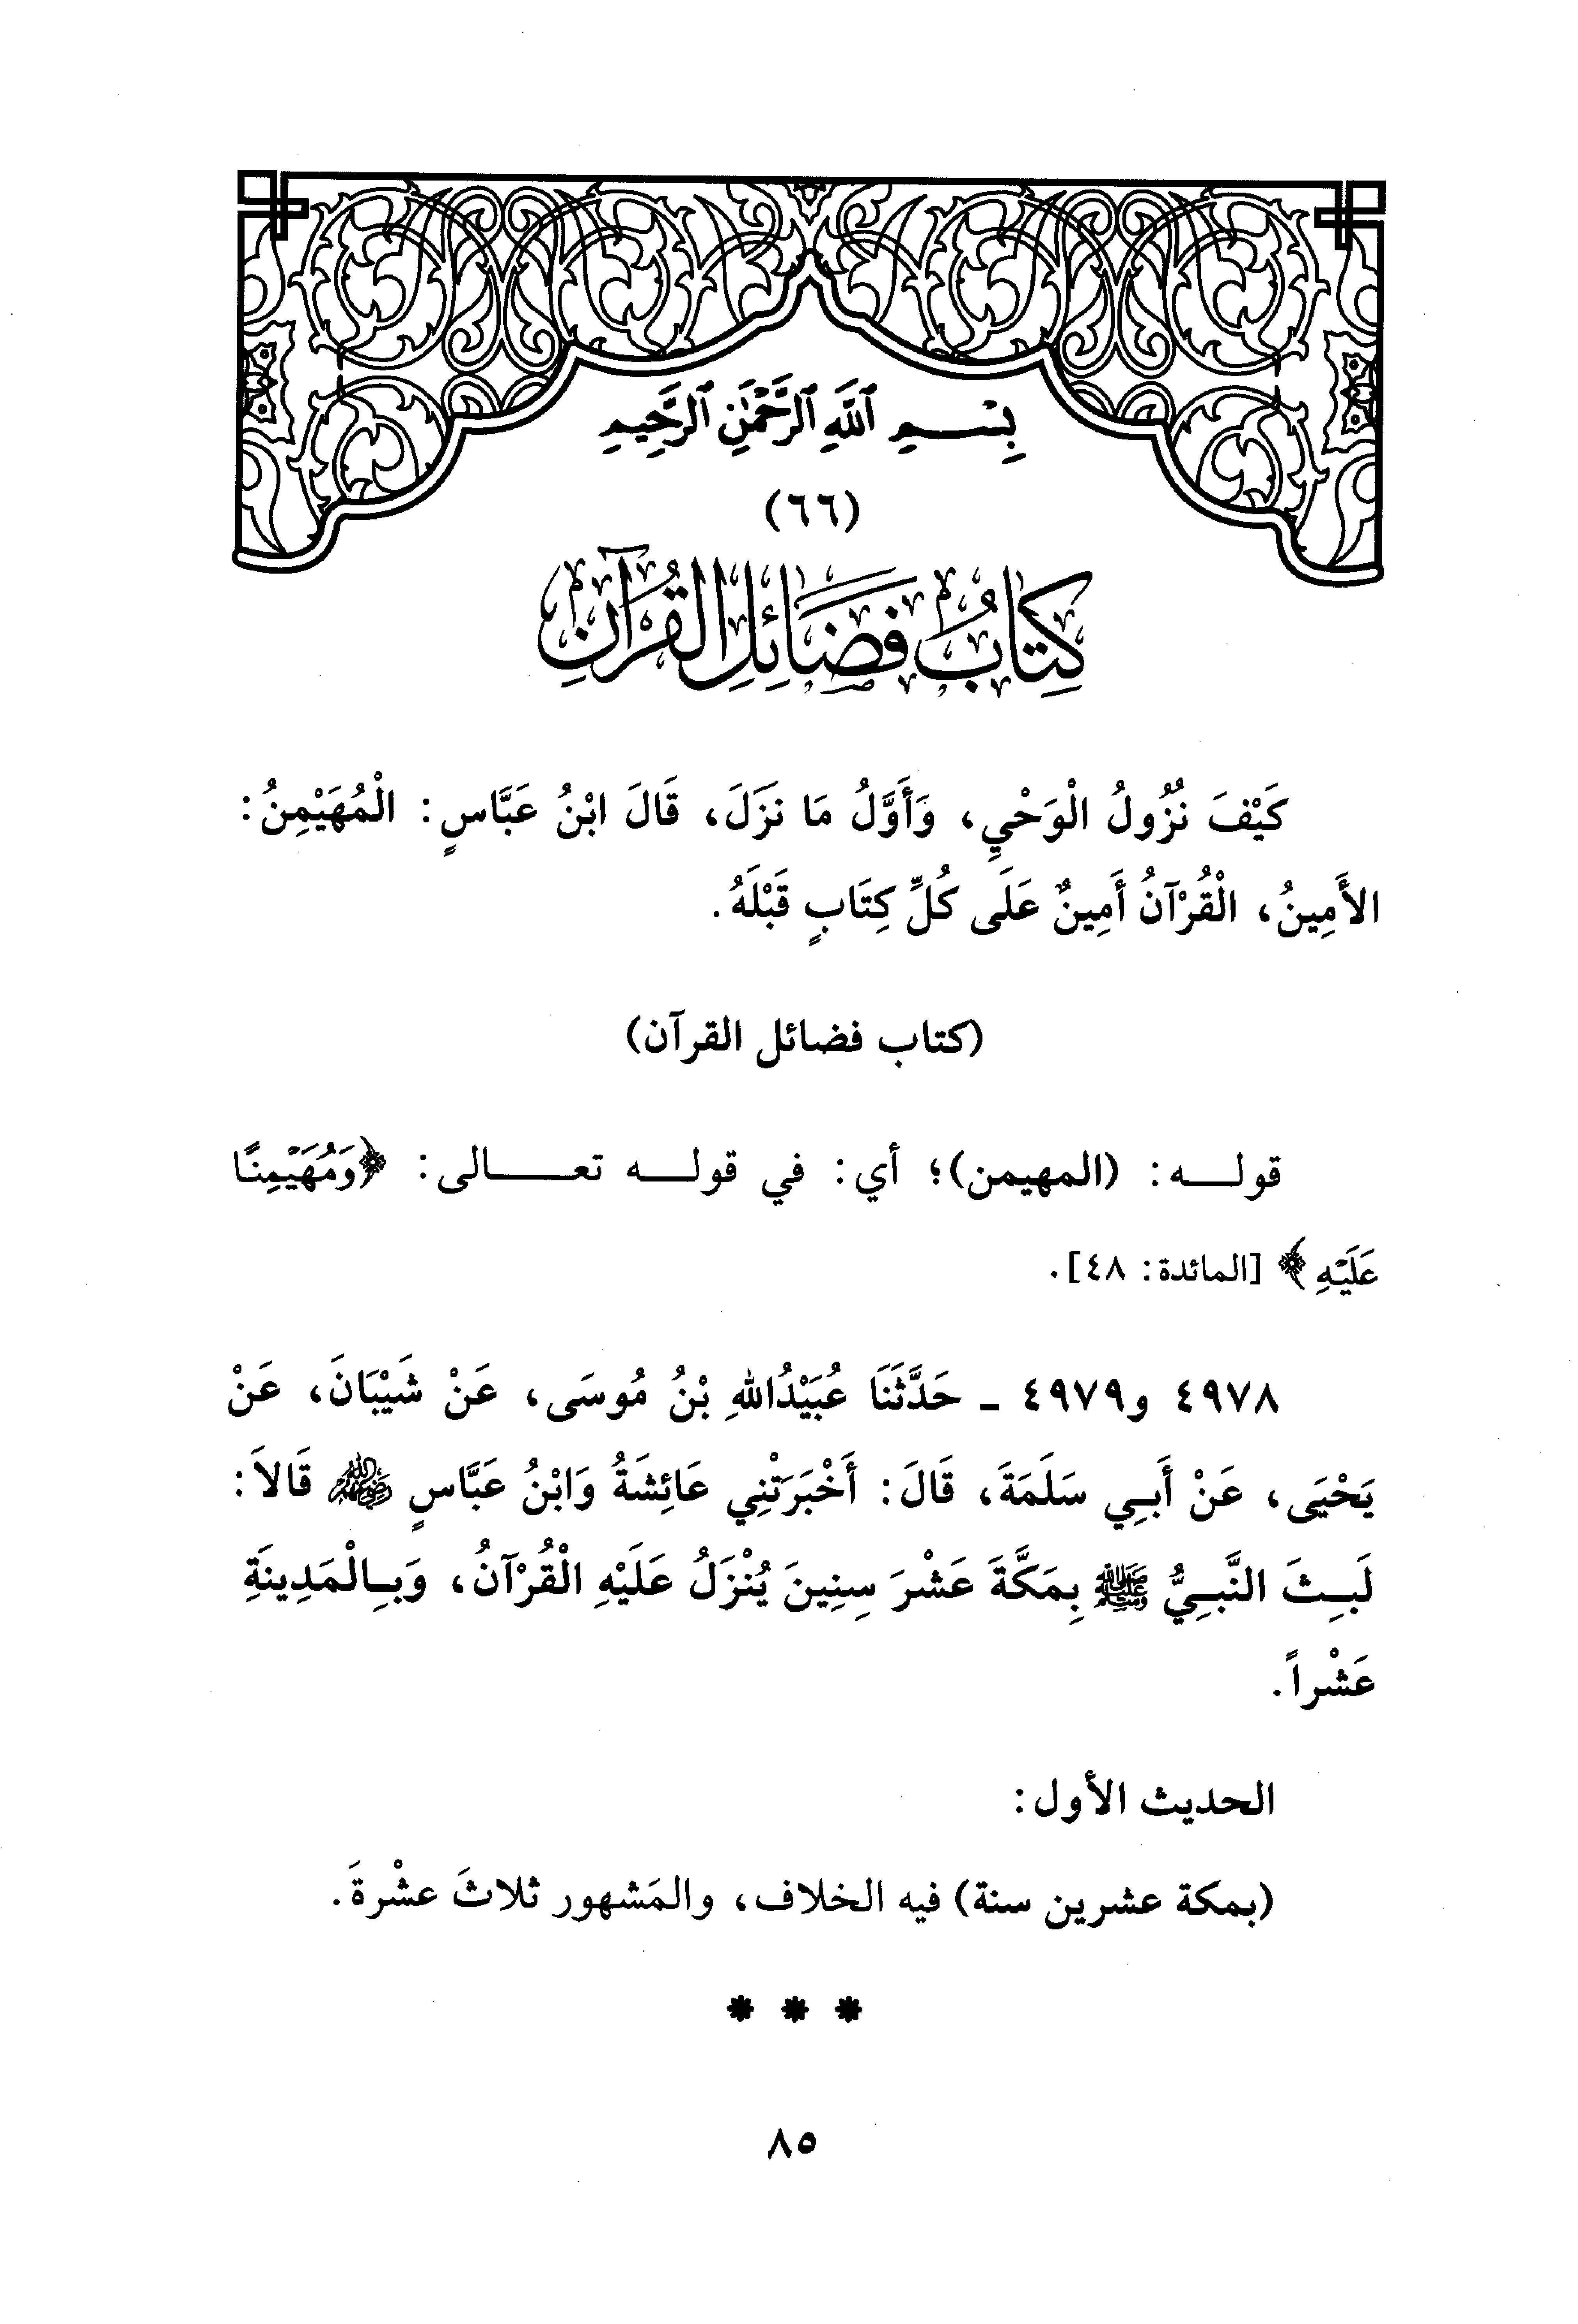 بِسْمِ ٱللَّهِ ٱلرَّحْمَٰنِ ٱلرَّحِيمِ
(٦٦)
كِتَابُ فَضَائِلِ الْقُرْآنِ
كَيْفَ نُزُولُ الْوَحْيِ، وَأَوَّلُ مَا نَزَلَ، قَالَ ابْنُ عَبَّاسٍ: الْمُهَيْمِنُ:
الأَمِينُ، الْقُرْآنُ أَمِينٌ عَلَى كُلِّ كِتَابٍ قَبْلَهُ.
(كتاب فضائل القرآن)
قولـه: (المهيمن)؛ أي: في قولـه تعـالى: ﴿وَمُهَيْمِنًا
عَلَيْهِ﴾ [المائدة: ٤٨].
٤٩٧٨ و٤٩٧٩ ـ حَدَّثَنَا عُبَيْدُاللهِ بْنُ مُوسَى، عَنْ شَيْبَانَ، عَنْ
يَحْيَى، عَنْ أَبِي سَلَمَةَ، قَالَ: أَخْبَرَتْنِي عَائِشَةُ وَابْنُ عَبَّاسٍ ﵃ قَالاَ:
لَبِثَ النَّبِيُّ ﷺ بِمَكَّةَ عَشْرَ سِنِينَ يُنْزَلُ عَلَيْهِ الْقُرْآنُ، وَبِالْمَدِينَةِ
عَشْراً.
الحديث الأول:
(بمكة عشرين سنة) فيه الخلاف، والمَشهور ثلاثَ عشْرةَ.
* * *
٨٥